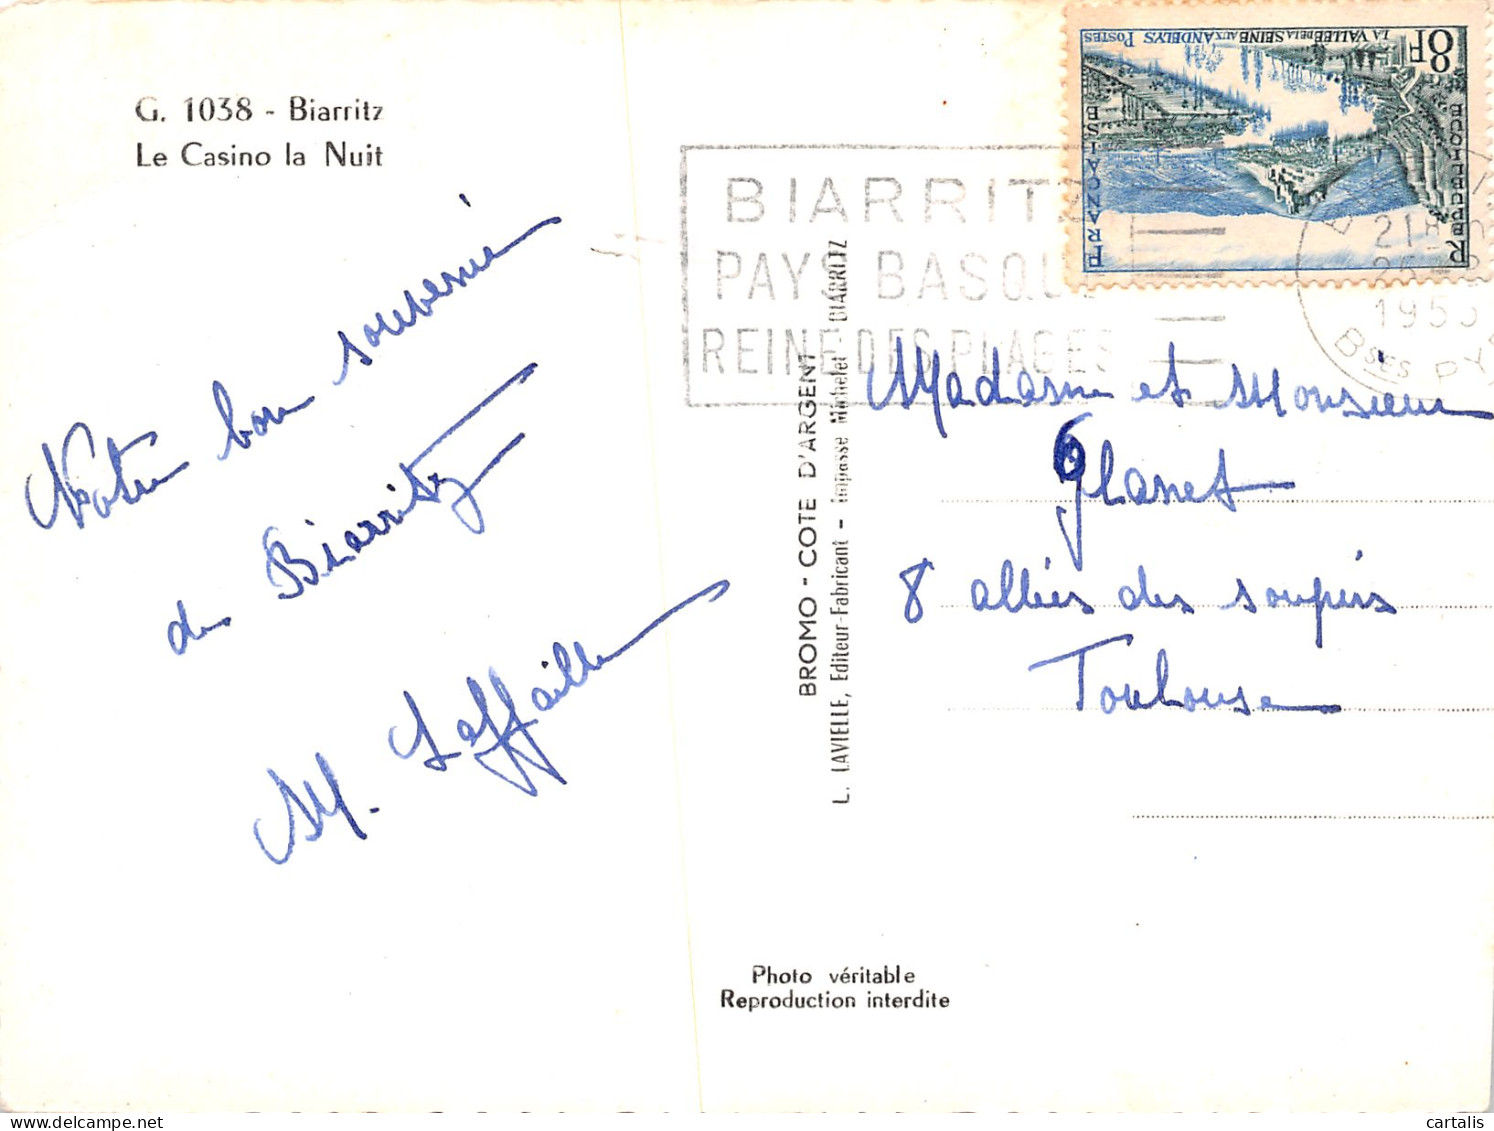 G. 1038 - Biarritz
Le Casino la Nuit
Notre bon souvenir
de Biarritz
M. Laffaille
BROMO - COTE D'ARGENT
L. LAVIELLE, Editeur-Fabricant - Impasse Michelet - BIARRITZ
BIARRITZ
PAYS BASQUE
REINE DES PLAGES
LA VALLEE DE LA SEINE AUX ANDELYS POSTES
8F
REPUBLIQUE
FRANÇAISE
21H
1955
BSES PY
Madame et Monsieur
Planet
8 allées des soupirs
Toulouse
Photo véritable
Reproduction interdite
cartalis